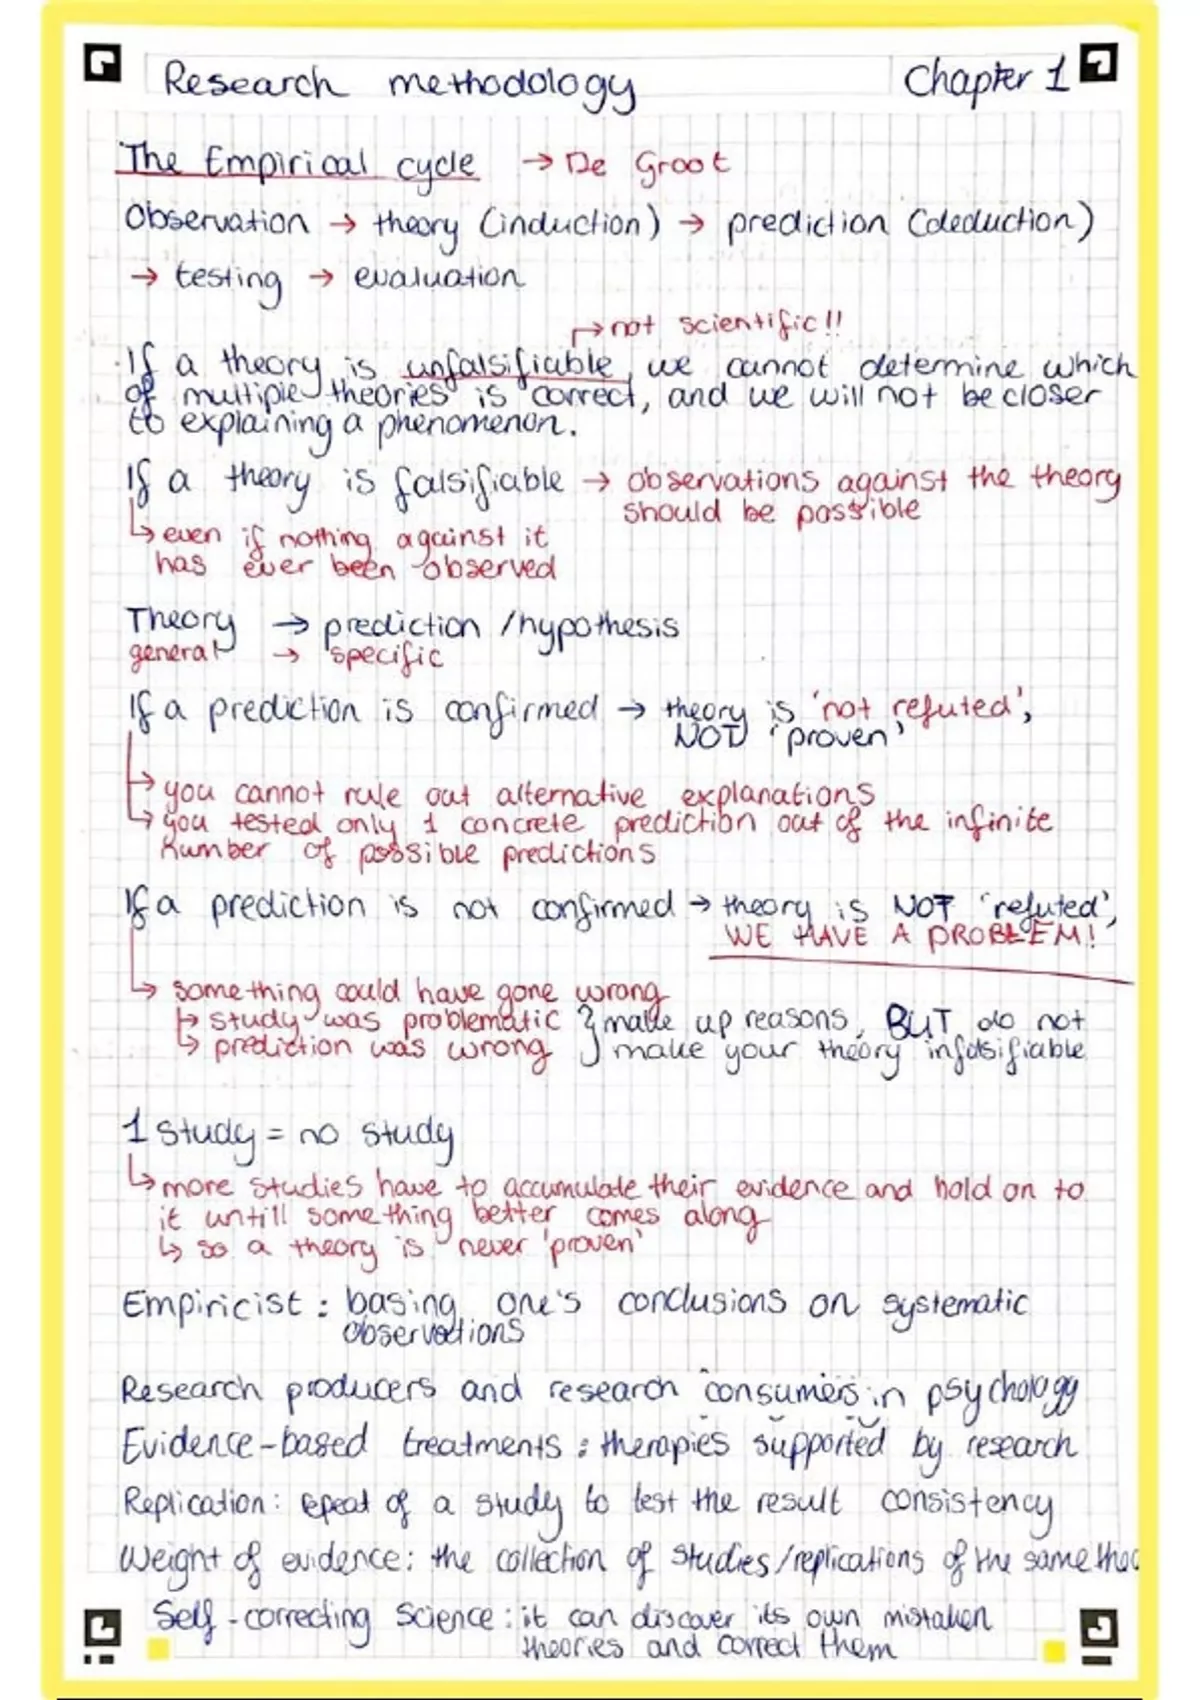 Research methodology Chapter 1
The Empirical cycle → De Groot
Observation → theory (induction) → prediction (deduction)
→ testing → evaluation
↱ not scientific!!
If a theory is unfalsifiable, we cannot determine which
of multiple theories is correct, and we will not be closer
to explaining a phenomenon.
If a theory is falsifiable → observations against the theory
should be possible
↳ even if nothing against it
has ever been observed
Theory → prediction /hypothesis
general → specific
If a prediction is confirmed → theory is 'not refuted',
NOT 'proven'
↳ you cannot rule out alternative explanations
↳ you tested only 1 concrete prediction out of the infinite
number of possible predictions
If a prediction is not confirmed → theory is NOT 'refuted',
WE HAVE A PROBLEM!
↳ something could have gone wrong
↳ study was problematic } make up reasons, BUT do not
↳ prediction was wrong } make your theory infalsifiable
1 study = no study
↳ more studies have to accumulate their evidence and hold on to
it untill something better comes along
↳ so a theory is never 'proven'
Empiricist: basing one's conclusions on systematic
observations
Research producers and research consumers in psychology
Evidence-based treatments: therapies supported by research
Replication: repeat of a study to test the result consistency
Weight of evidence: the collection of studies/replications of the same theo
Self-correcting science: it can discover its own mistaken
theories and correct them